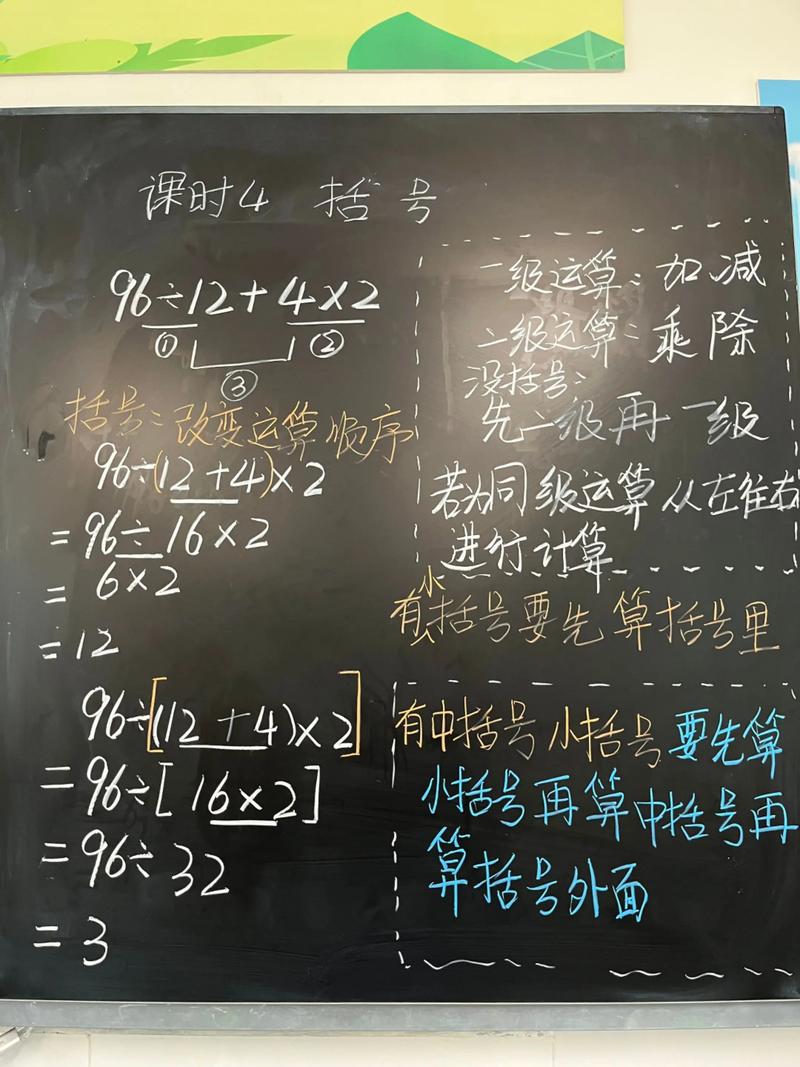 课时4 括号
96÷12+4×2
① ②
③
括号:改变运算顺序
96÷(12+4)×2
=96÷16×2
=6×2
=12
96÷[(12+4)×2]
=96÷[16×2]
=96÷32
=3
一级运算:加减
二级运算:乘除
没括号:
先二级再一级
若为同级运算从左往右
进行计算
有小括号要先算括号里
有中括号小括号要先算
小括号再算中括号再
算括号外面